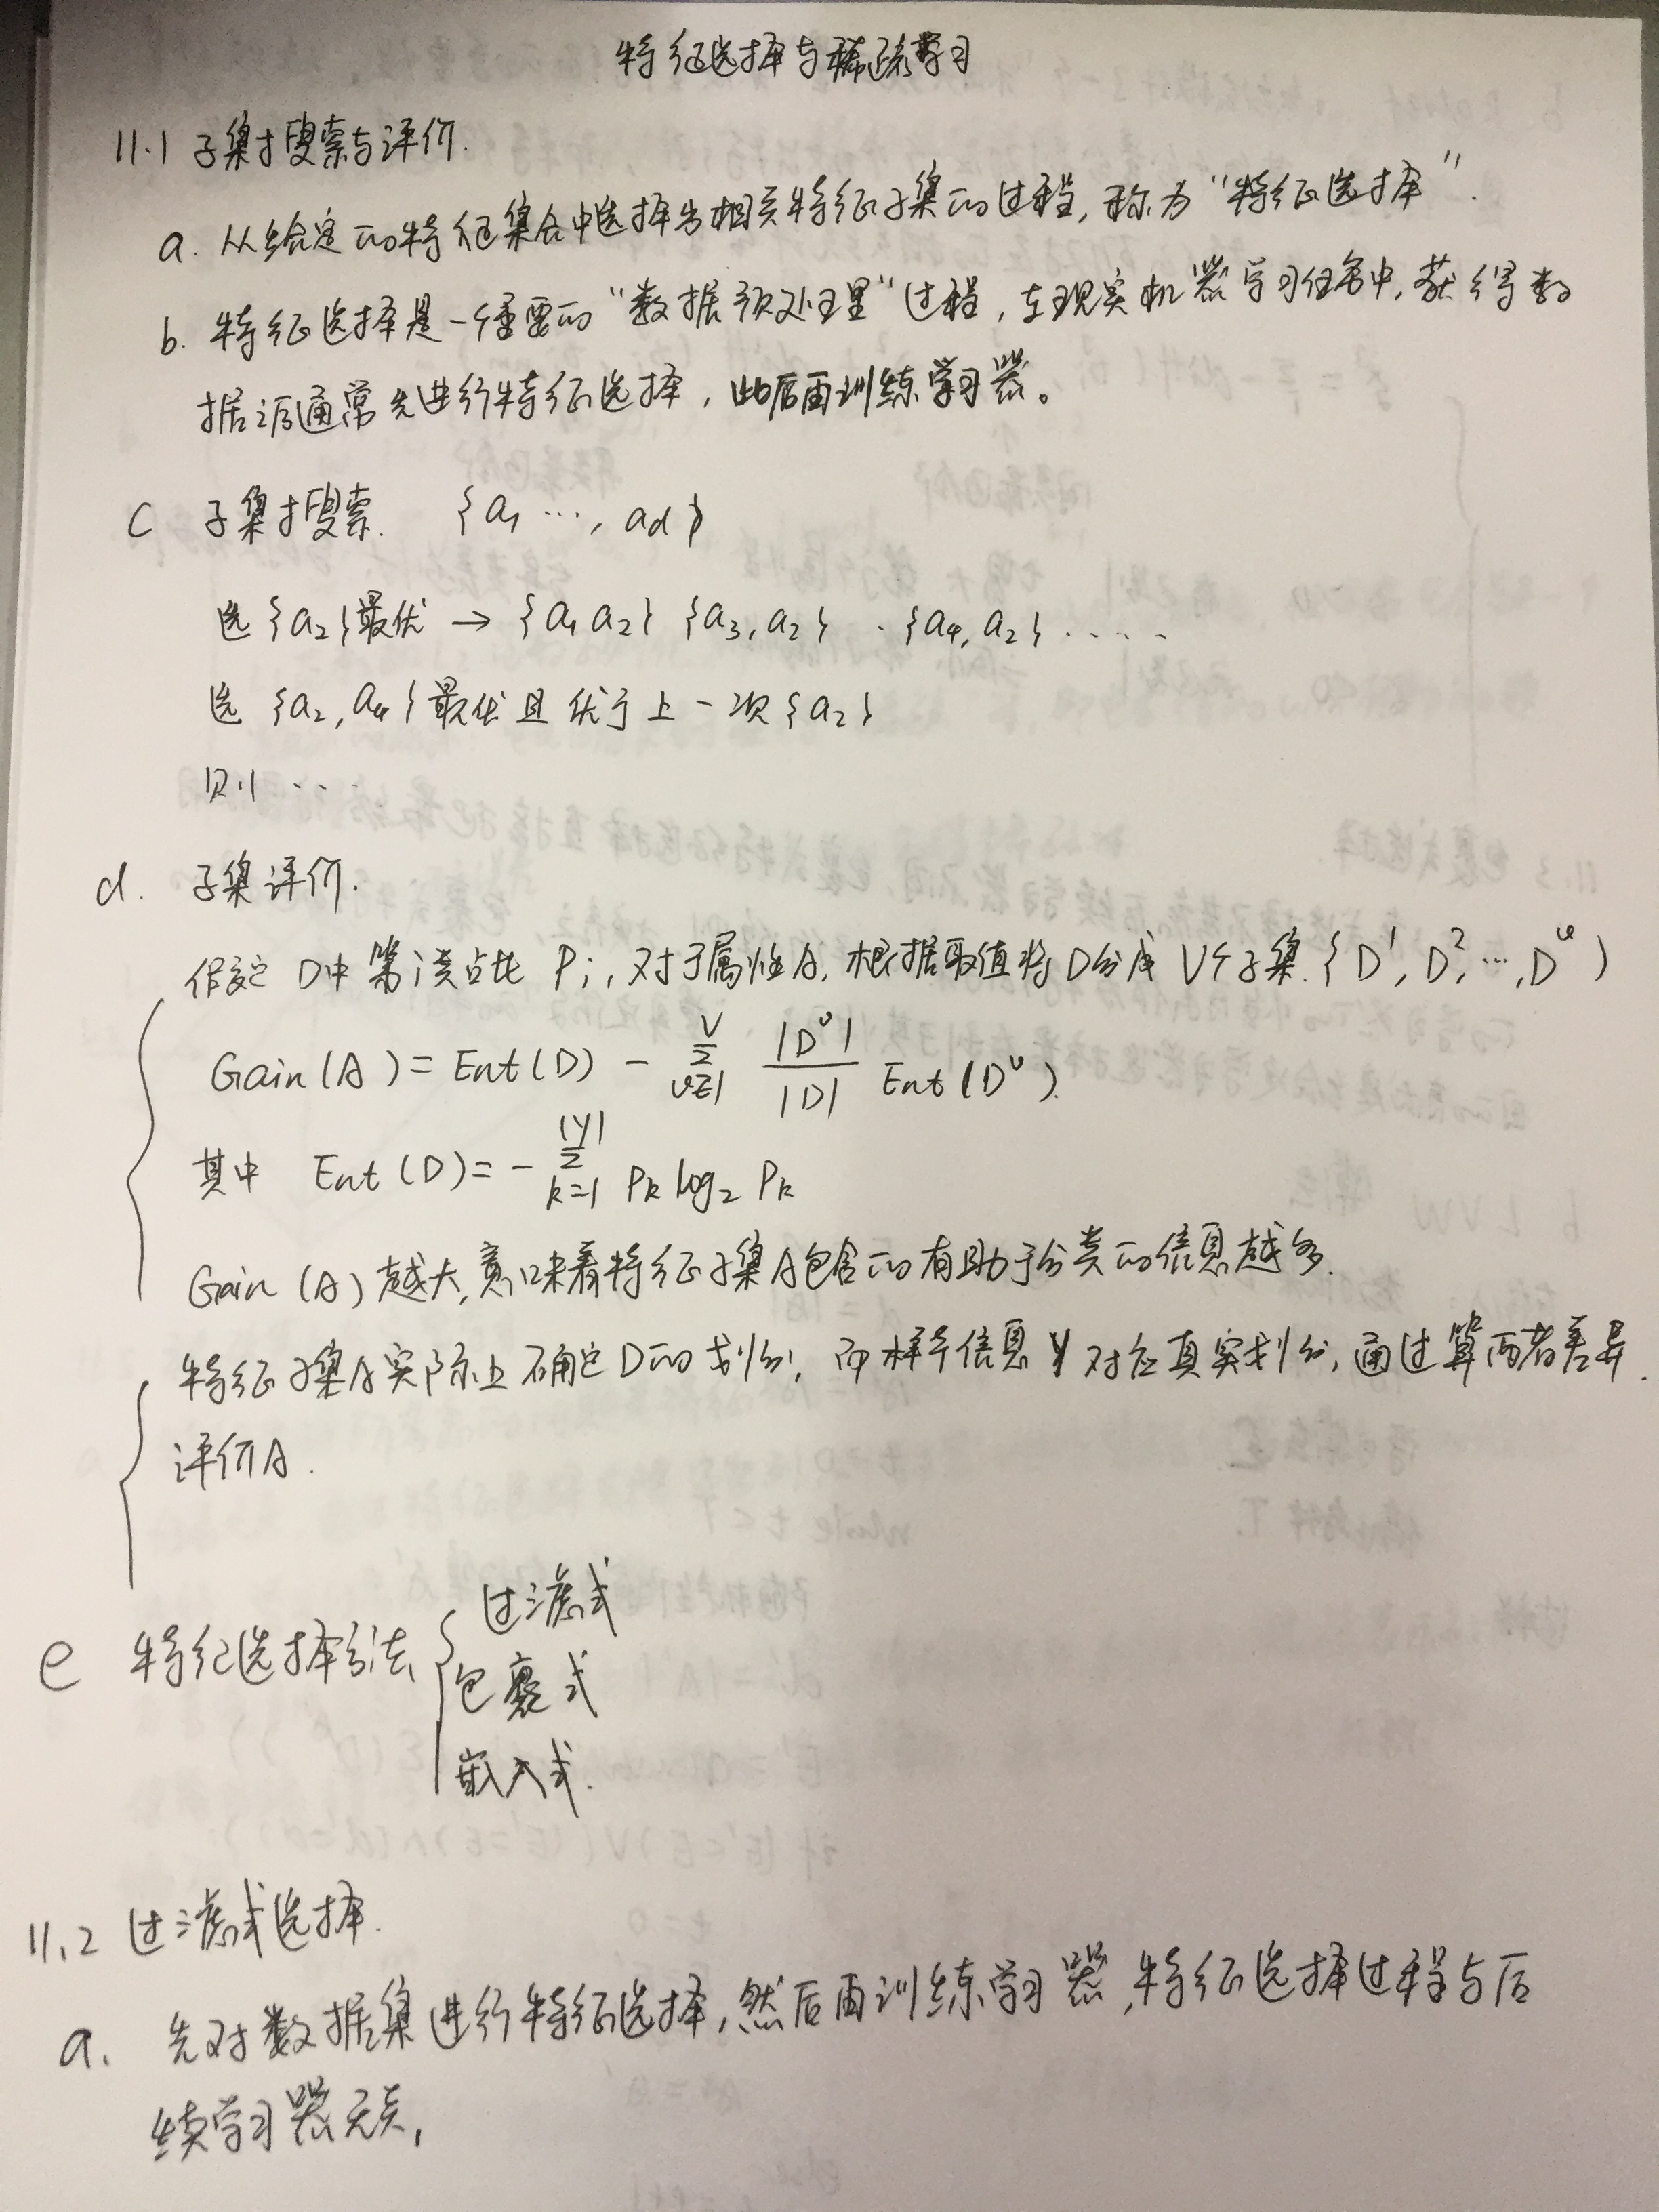 特征选择与稀疏学习
11.1 子集搜索与评价.
a. 从给定的特征集合中选择出相关特征子集的过程, 称为“特征选择”.
b. 特征选择是一个重要的“数据预处理”过程, 在现实机器学习任务中, 获得数
据后通常先进行特征选择, 此后再训练学习器。
c 子集搜索. {a1 ..., ad}
选{a2}最优 → {a1 a2} {a3, a2} . {a4, a2} .....
选 {a2, a4}最优且优于上一次{a2}
则 ...
d. 子集评价.
假定 D中第i类占比 Pi, 对于属性A, 根据取值将D分成V个子集.{D¹, D², ..., Dᵛ}
Gain(A) = Ent(D) - ∑_{v=1}^{V} |Dᵛ|/|D| Ent(Dᵛ).
其中 Ent(D) = - ∑_{k=1}^{|y|} Pk log₂ Pk
Gain(A)越大, 意味着特征子集A包含的有助于分类的信息越多.
特征子集A实际上确定D的划分, 而样本信息Y对应真实划分, 通过算两者差异.
评价A.
e 特征选择方法 { 过滤式
包裹式
嵌入式.
11.2 过滤式选择.
a. 先对数据集进行特征选择, 然后再训练学习器, 特征选择过程与后
续学习器无关,